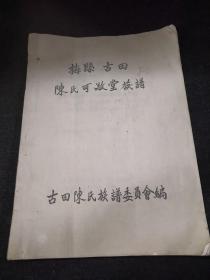 梅縣 古田
陳氏可啟堂族譜
古田陳氏族譜委員會編